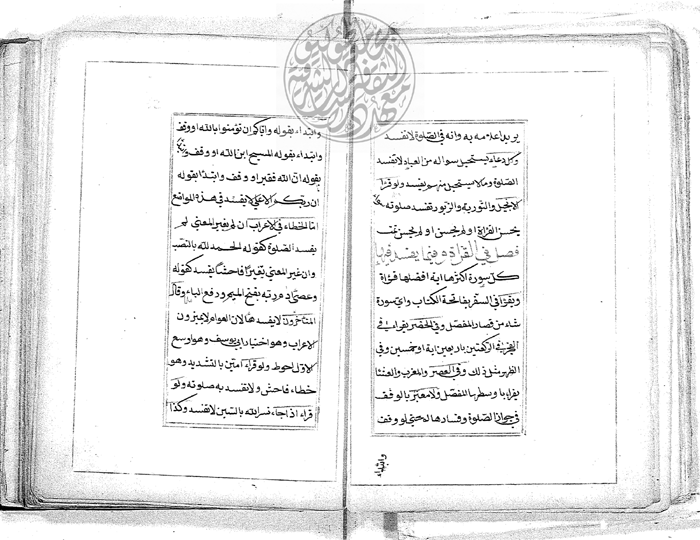 يريد اعلامه به وانه في الصلوة لا تفسد
وكل دعاء يستحيل سواله من العباد لا تفسد
الصلوة وما لا يستحيل منهم يفسد ولو قرأ
الانجيل والتورية والزبور تفسد صلوته
يحسن القرأة او لم يحسن او لم يحسن
فصل في القرأة وفيما يفسد فيها
كل سورة اكثرها اية افضلها قرأة
ويقرأ في السفر بفاتحة الكتاب واي سورة
شاء من قصار المفصل وفي الحضر يقرأ في
الفجر في الركعتين باربعين اية او خمسين وفي
الظهر مثل ذلك وفي العصر والمغرب والعشا
يقرأ باوسطها المفصل ولا معتبر بالوقف
في جواز الصلوة وفسادها حتى لو وقف
وابتداء
وابتداء بقوله واياكم ان تؤمنوا بالله او وقف
وابتداء بقوله المسيح ابن الله او وقف
بقوله ان الله فقير او وقف وابتدا بقوله
ان ربكم الاعلى لا يفسد في هذه المواضع
اما الخطاء في الاعراب ان لم يغير المعنى لم
يفسد الصلوة كقوله الحمد لله بالنصب
وان غير المعنى تغييرا فاحشا يفسد كقوله
وعصى ادم ربه بفتح الميم ورفع الباء وقال
المتاخرون لا يفسدها لان العوام لا يميزون
الاعراب وهو اختيار ابي يوسف وهو اوسع
الاول احوط ولو قراء امين بالتشديد وهو
خطاء فاحش ولا تفسد به صلوته ولو
قراء اذا جاء نصر الله بالسين لا تفسد وكذا